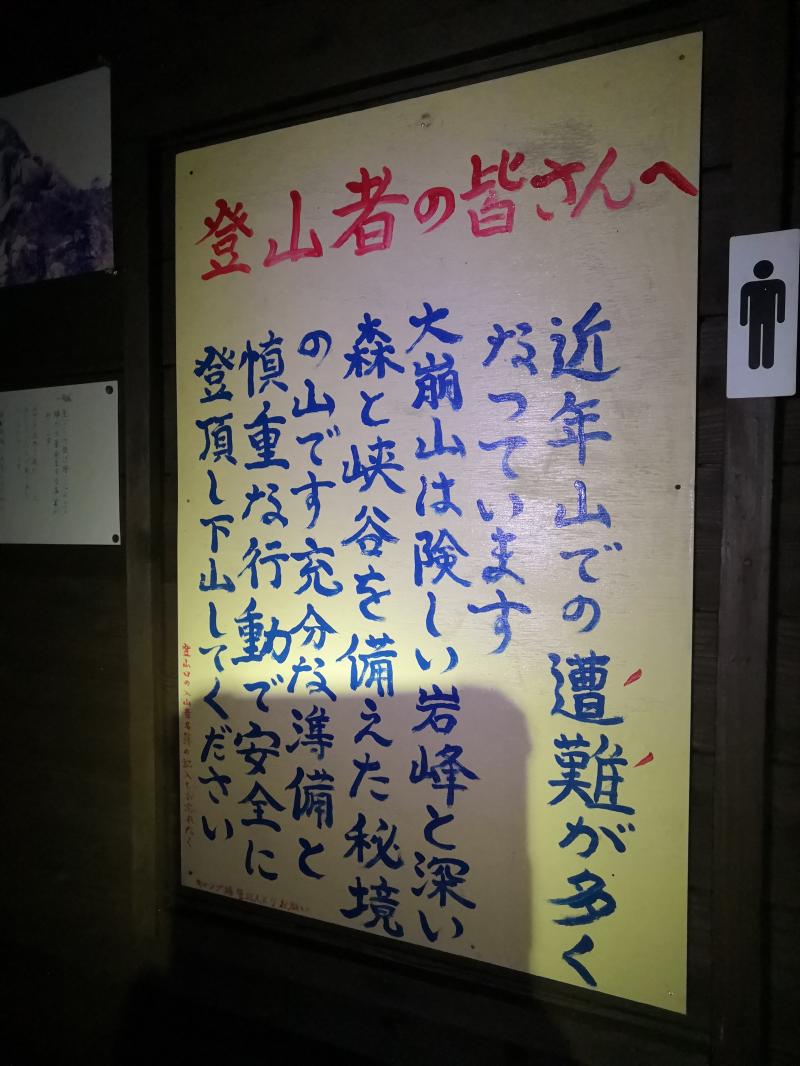 登山者の皆さんへ
近年山での遭難が多く
なっています
大崩山は険しい岩峰と深い
森と峡谷を備えた秘境
の山です充分な準備と
慎重な行動で安全に
登頂し下山してください
登山口の入山者名簿の記入もお忘れなく
キャンプ場管理人よりお願い